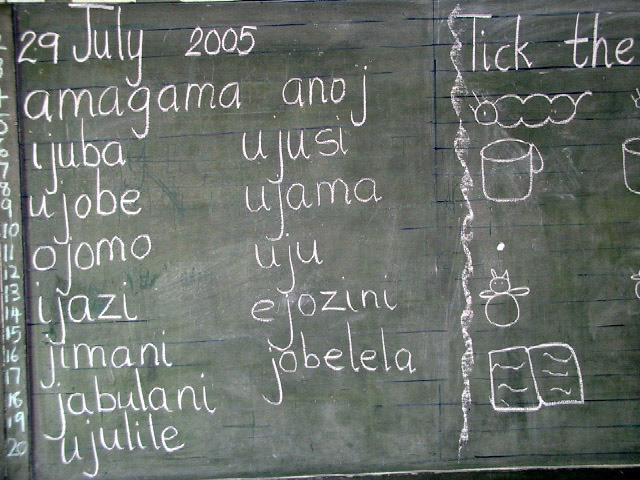 29 July 2005
amagama anoj
ijuba ujusi
ujobe ujama
ojomo uju
ijazi ejozini
jimani jobelela
jabulani
ujulile
Tick the
2
3
4
5
6
7
8
9
10
11
12
13
14
15
16
17
18
19
20